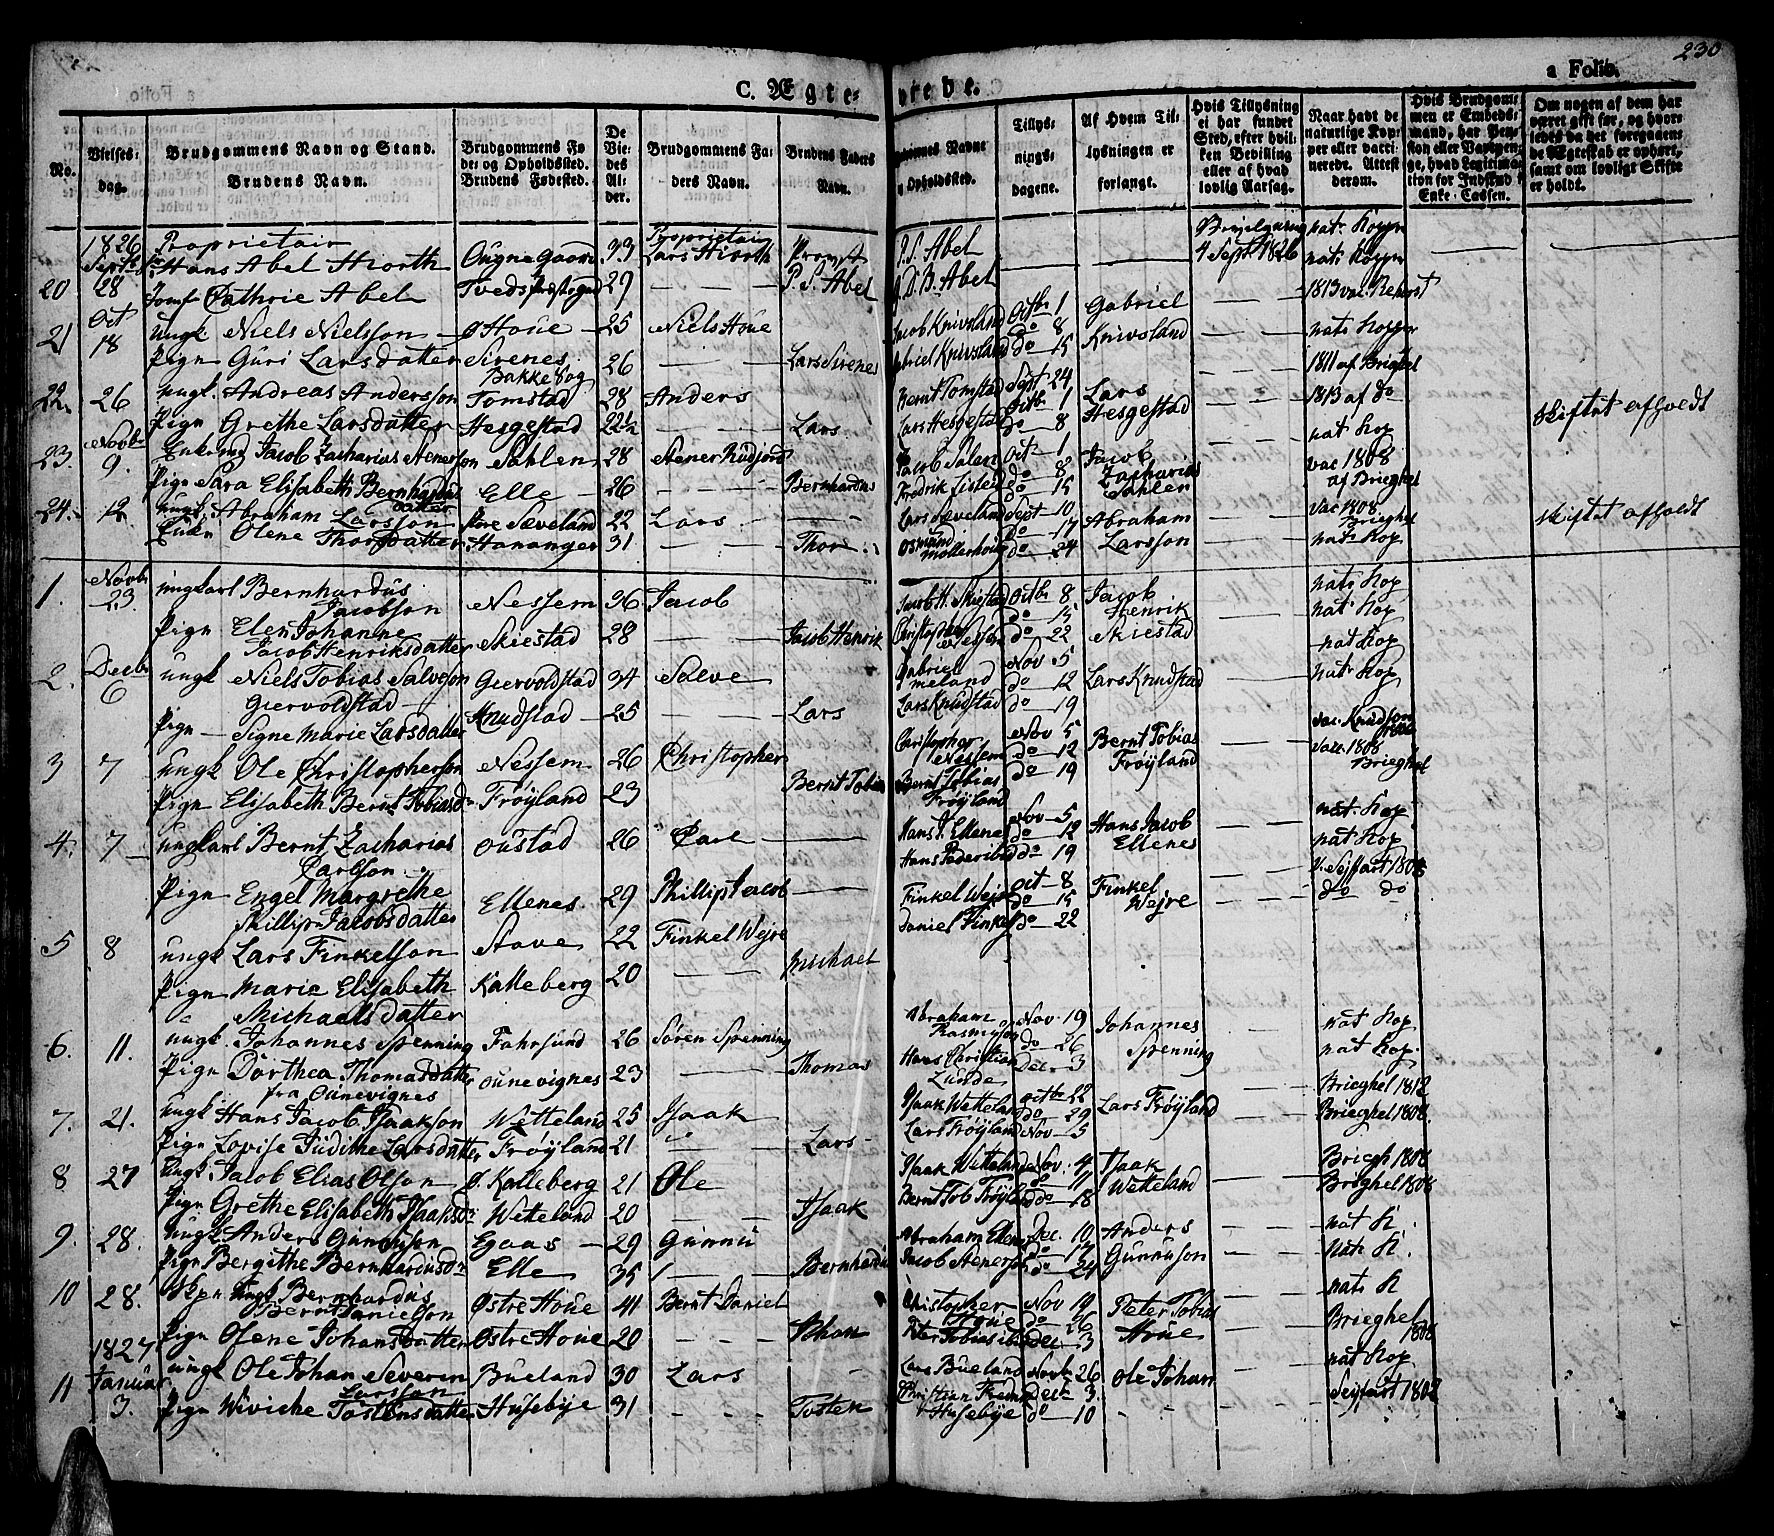 230
a Folio.
C. Ægte-
viede.
No.
Vielses-
dag.
Brudgommens Navn og Stand.
Brudens Navn.
Brudgommens Fø
de- og Opholdssted.
Brudens Fødested.
De
Vie-
des
Al-
der.
Brudgommens Fa-
ders Navn.
Brudens Faders
Navn.
Navne
Opholdssted.
Tillys-
nings-
dagene.
Af Hvem Til-
lysningen er
forlangt.
Hvis Tillysning
ei har fundet
Sted, efter hvil-
ken Bevilling
eller af hvad
lovlig Aarsag.
Naar havt de
naturlige Kop-
per eller vacci-
nerede. Attest
derom.
Hvis Brudgom-
men er Embeds-
mand, har Pen-
sion eller Vartpen-
ge, hvad Legitima-
tion for Indskud i
Enke-Cassen.
Om nogen af dem har
været gift før, og hvor-
ledes da det foregaaen-
de Ægteskab er ophørt,
samt om lovligt Skifte
er holdt.
1826 Proprietair Proprietair nat. Kopper
Sept. Hans Abel Hiorth 33 Lars Hiorth Provst P. S. Abel 4 Sept 1826 nat: Kopper
20 28 Jomf Cathrie Abel 29 P. S. Abel Abel 1813 vac.
Oct
21 18 ungk Niels Nielsson Houe 25 Niels Houe Jacob Knivsland Octbr 1 do 8 Gabriel Knivsland nat: Kopper
Pign Guri Larsdatter Sirenes 26 Lars Sirenes Gabriel Knivsland do 15 1811 af Brieghel
22 26 ungk. Andreas Andersson Bakke Sog Tomstad 28 Anders Bernt Tomstad Sept 24 Lars 1813 af do
Pign Grethe Larsdatter Hesgestad 22½ Lars Lars Hesgestad Octbr 1 do 8 Hesgestad nat Kop skiftet afholdt
Novbr
23. 9. Enkemd Jacob Zacharias Stenersson Sahlen 28 Stener Rudjord Jacob Salen Oct 1 Jacob Zacharias Sahlen vac 1808
Pign Sara Elisabeth Bernhardus datter Elle 26 Bernhardus Fredrik do 8 do 15 af Brieghel
24. 12. ungk. Abraham Larsson Sæveland 22 Lars Lars Sæveland Sept 10 Abraham Vac 1808. Brieghel
Enken Olene Thorsdatter Hananger 31 Thor Osmund do 17 do 24 Larsson nat: Kop skiftet afholdt
1. Novbr 23 ungkarl Bernhardus Jacobson Nessem 36 Jacob Jacob H. Skiestad Octbr 8 Jacob Henrik nat: Kop
Pign Elen Johanne Jacob Henriksdatter Skiestad 28 Jacob Henrik Christopher Nessem do 15 do 22 Skiestad nat: Kop
2. Decbr 6 ungk Niels Tobias Salveson Giervoldstad Giervoldstad 34 Salve Gabriel Meland Nov 5 do 12 Lars Knudstad nat Kop
Pign Signe Marie Larsdatter Knudstad 25 Lars Lars Knudstad do 19 nat: Kop
3 7 ungk Ole Christopherson Nessem 26 Christopher Christopher Nessem Nov 5 do 12 Bernt Tobias vac. Knudson
Pign Elisabeth Bernt Tobiasd: Frøyland 23 Bernt Tobias Bernt Tobias Frøyland do 19 Frøyland vac. 1808 Brieghel
4. 7 ungkarl Bernt Zacharias Carlsson Oustad 26 Carl Hans J. Ellenes Nov 5 do 12 Hans Jacob nat: Kop
Pign Engel Margrethe Phillip Jacobsdatter Ellenes 29 Phillip Jacob Hans do 19 Ellenes nat Kop
5 8 ungk Lars Finkelson Stave 22 Finkel Wejre Finkel Wejre Oct 8 do 15 Finkel Wejre V. Seyffart 1808
Pign Maria Elisabeth Michaelsdatter Kalleberg 20 Michael Daniel Finkels do 22 do do
6. 11. ungk. Johannes Spenning Fahrsund 26 Søren Spenning Abraham Rasmusson Nov. 19 do 26 Johannes nat Kop
Pign Dorthea Thomasdatter fra Ounevignes Ounevignes 23 Thomas Hans Christian Lunde Dec. 3 Spenning nat Kop.
7. 21. ungk Hans Jacob Isaakson Wetteland 25 Isaak Isaak Wetteland Octbr 22 do 29 Lars Frøyland Brieghel 1812
Pign Lovise Judithe Larsdatter Frøyland 21 Lars Lars Frøyland Nov 5 Brieghel 1808.
8 27 Ungk. Jacob Elias Olson Ø. Kalleberg 21 Ole Isaak Wetteland Nov. 4 do 11 Isaak Briegh 1808
Pign Grethe Elisabeth Isaaksd: Wetteland 20 Isaak Bernt Tob Frøyland do 18 Wetteland Brieghel 1808
9. 28. ungk Anders Gunnuson Egaas 29 Gunnu Abraham Ellenes Dec. 10 do 17 Anders nat K.
Pign Bergithe Bernhardusd: Elle 35 Bernhardus Jacob Stenerson do 24 Gunnuson nat: K.
10 28. ungk Bernhardus Bernt Danielson Østre Houe 41 Bernt Daniel Christopher Houe Nov 19 do 26 Peter Tobias nat: K
Pign Olene Johansdatter Østre Houe 20 Johan Peter Tobias Dec. 3 Houe Brieghel 1808
1827
11 Januar 3. ungk Ole Johan Severin Larsson Bueland 30 Lars Lars Bueland Novbr 26 Ole Johan nat Kop
Pign Wiviche Tostensdatter Husebye 31 Tosten Christian Husebye Dec 3. do 10 Seyffart 1802